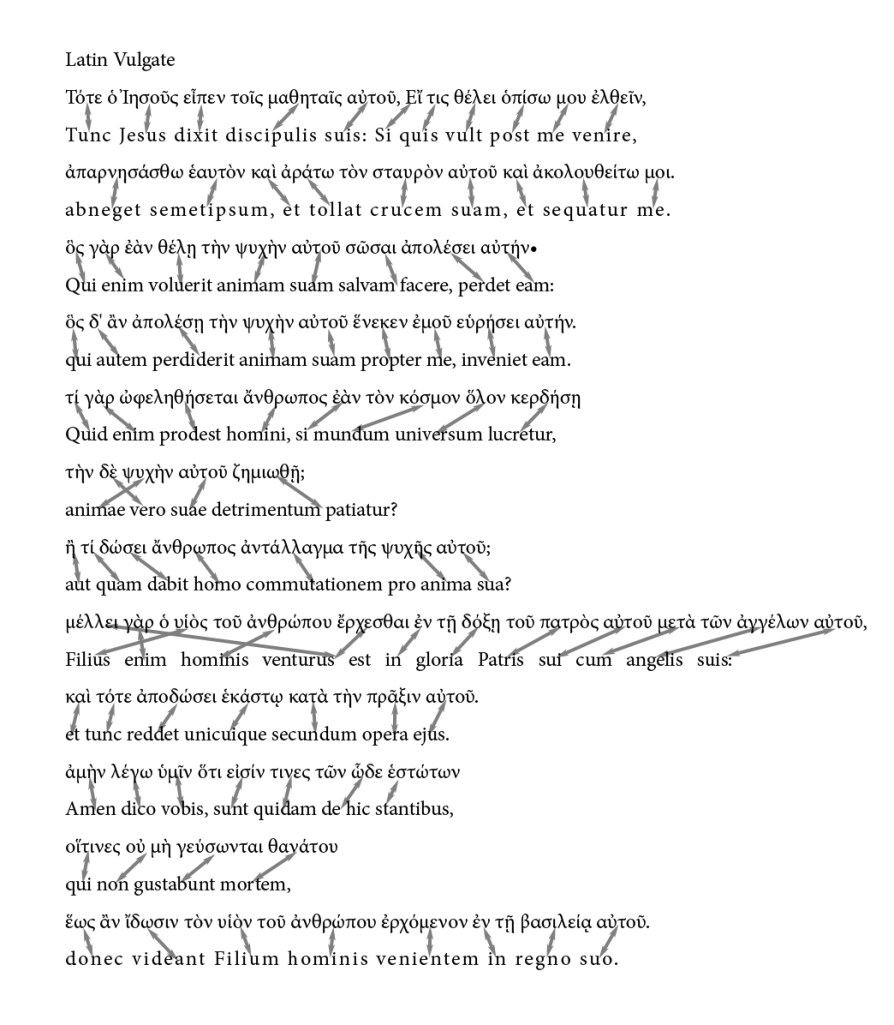 Latin Vulgate
Τότε ὁ Ἰησοῦς εἶπεν τοῖς μαθηταῖς αὐτοῦ, Εἴ τις θέλει ὀπίσω μου ἐλθεῖν,
Tunc Jesus dixit discipulis suis: Si quis vult post me venire,
ἀπαρνησάσθω ἑαυτὸν καὶ ἀράτω τὸν σταυρὸν αὐτοῦ καὶ ἀκολουθείτω μοι.
abneget semetipsum, et tollat crucem suam, et sequatur me.
ὃς γὰρ ἐὰν θέλῃ τὴν ψυχὴν αὐτοῦ σῶσαι ἀπολέσει αὐτήν•
Qui enim voluerit animam suam salvam facere, perdet eam:
ὃς δ' ἂν ἀπολέσῃ τὴν ψυχὴν αὐτοῦ ἕνεκεν ἐμοῦ εὑρήσει αὐτήν.
qui autem perdiderit animam suam propter me, inveniet eam.
τί γὰρ ὠφεληθήσεται ἄνθρωπος ἐὰν τὸν κόσμον ὅλον κερδήσῃ
Quid enim prodest homini, si mundum universum lucretur,
τὴν δὲ ψυχὴν αὐτοῦ ζημιωθῇ;
animae vero suae detrimentum patiatur?
ἢ τί δώσει ἄνθρωπος ἀντάλλαγμα τῆς ψυχῆς αὐτοῦ;
aut quam dabit homo commutationem pro anima sua?
μέλλει γὰρ ὁ υἱὸς τοῦ ἀνθρώπου ἔρχεσθαι ἐν τῇ δόξῃ τοῦ πατρὸς αὐτοῦ μετὰ τῶν ἀγγέλων αὐτοῦ,
Filius enim hominis venturus est in gloria Patris sui cum angelis suis:
καὶ τότε ἀποδώσει ἑκάστῳ κατὰ τὴν πρᾶξιν αὐτοῦ.
et tunc reddet unicuique secundum opera ejus.
ἀμὴν λέγω ὑμῖν ὅτι εἰσίν τινες τῶν ὧδε ἑστώτων
Amen dico vobis, sunt quidam de hic stantibus,
οἵτινες οὐ μὴ γεύσωνται θανάτου
qui non gustabunt mortem,
ἕως ἂν ἴδωσιν τὸν υἱὸν τοῦ ἀνθρώπου ἐρχόμενον ἐν τῇ βασιλείᾳ αὐτοῦ.
donec videant Filium hominis venientem in regno suo.